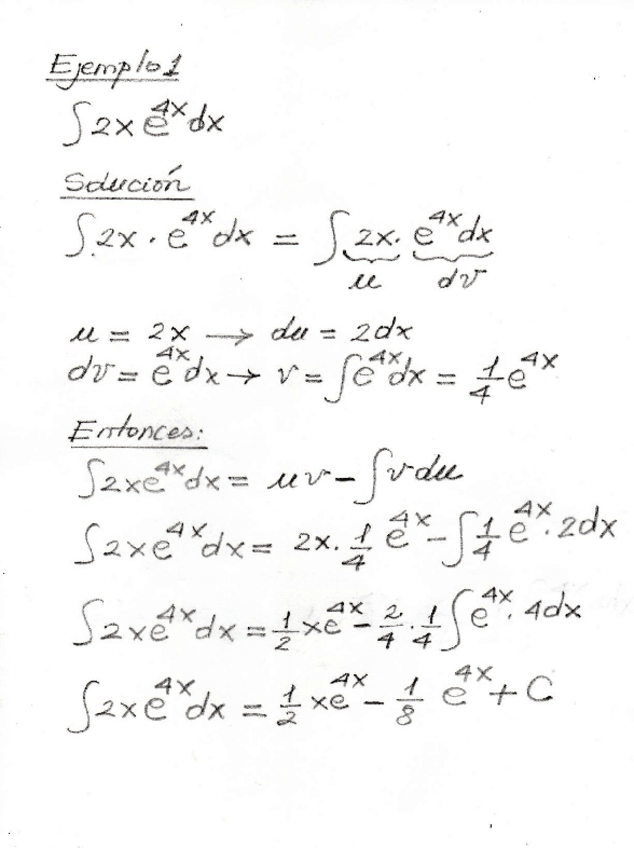 Ejemplo 1
∫2x e^{4x} dx
Solución
∫2x · e^{4x} dx = ∫2x · e^{4x} dx
u dv
u = 2x → du = 2dx
dv = e^{4x} dx → v = ∫e^{4x} dx = 1/4 e^{4x}
Entonces:
∫2xe^{4x} dx = uv - ∫v du
∫2xe^{4x} dx = 2x · 1/4 e^{4x} - ∫1/4 e^{4x} · 2dx
∫2xe^{4x} dx = 1/2 xe^{4x} - 2/4 · 1/4 ∫e^{4x} · 4dx
∫2xe^{4x} dx = 1/2 xe^{4x} - 1/8 e^{4x} + C